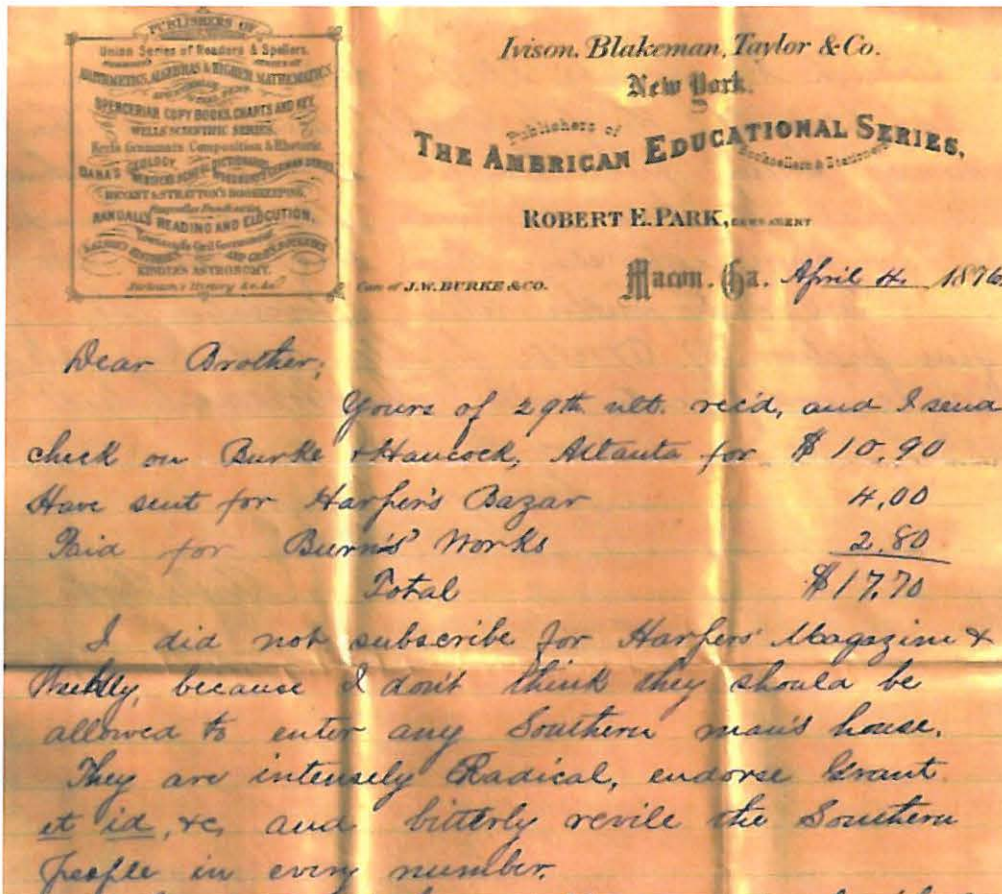 PUBLISHERS OF
Union Series of Readers & Spellers.
ARITHMETICS, ALGEBRAS & HIGHER MATHEMATICS,
SPENCERIAN COPY BOOKS, CHARTS AND KEY,
WELLS' SCIENTIFIC SERIES,
Kerl's Grammars Composition & Rhetoric,
DANA'S GEOLOGY
BRYANT & STRATTON'S BOOKKEEPING,
RANDALL'S READING AND ELOCUTION,
Townsend's Civil Government
KIDDLE'S ASTRONOMY.
Ivison, Blakeman, Taylor & Co.
New York.
Publishers of
THE AMERICAN EDUCATIONAL SERIES,
Booksellers & Stationers
ROBERT E. PARK, GEN. AGENT
Care of J.W. BURKE & CO.
Macon, Ga. April 4. 1876
Dear Brother;
Yours of 29th ult. rec'd, and I send
check on Burke & Hancock, Atlanta for $10.90
Have sent for Harper's Bazar 4,00
Paid for Burn's Works 2.80
Total $17.70
I did not subscribe for Harpers' Magazine &
Weekly, because I don't think they should be
allowed to enter any Southern man's house.
They are intensely Radical, endorse Grant
et id, &c, and bitterly revile the Southern
people in every number.